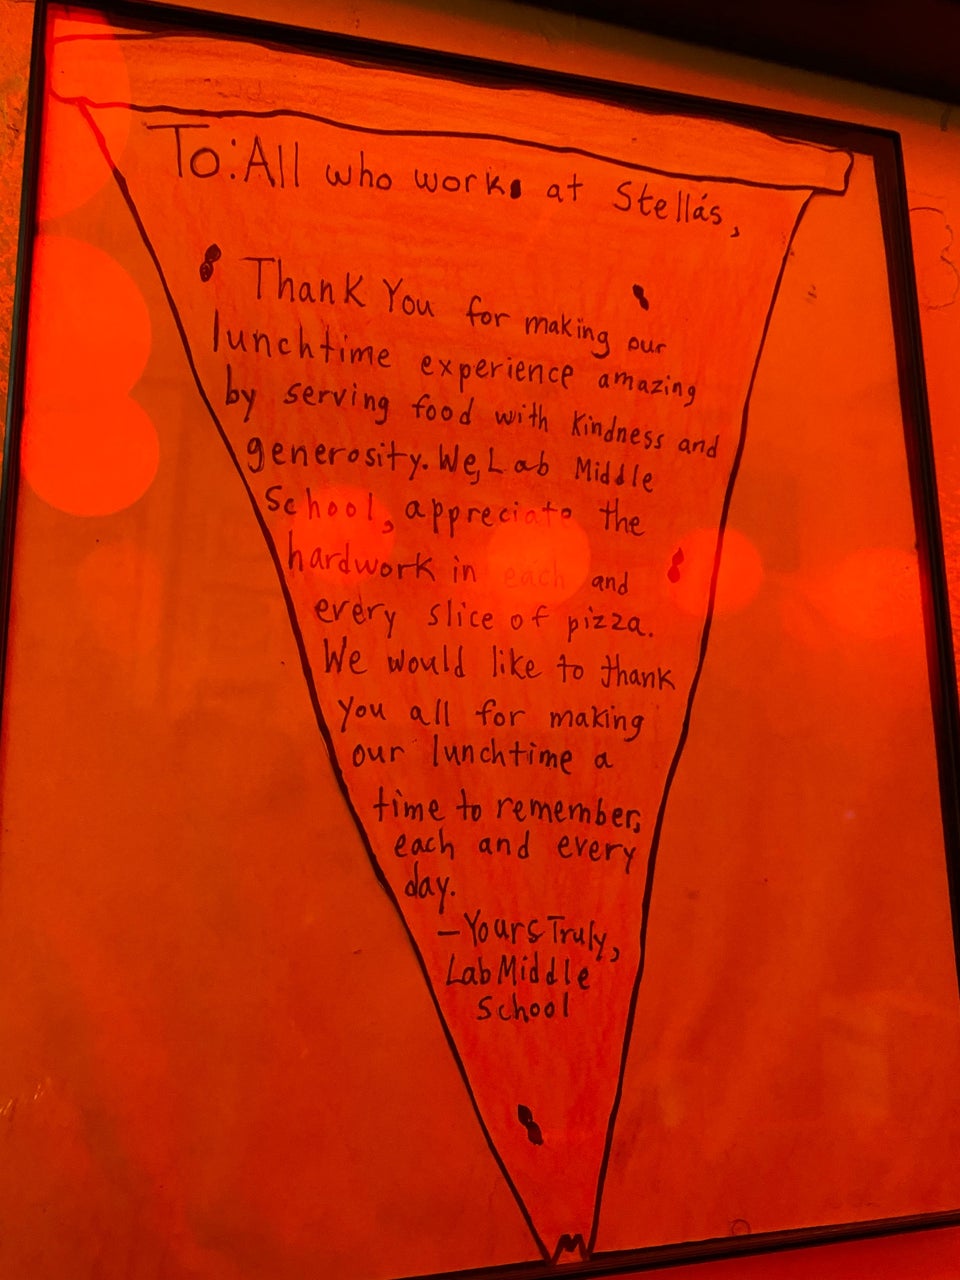 To: All who work at Stella's,
Thank You for making our
lunchtime experience amazing
by serving food with kindness and
generosity. We, Lab Middle
School, appreciate the
hardwork in each and
every slice of pizza.
We would like to thank
you all for making
our lunchtime a
time to remember,
each and every
day.
- Yours Truly,
Lab Middle
School